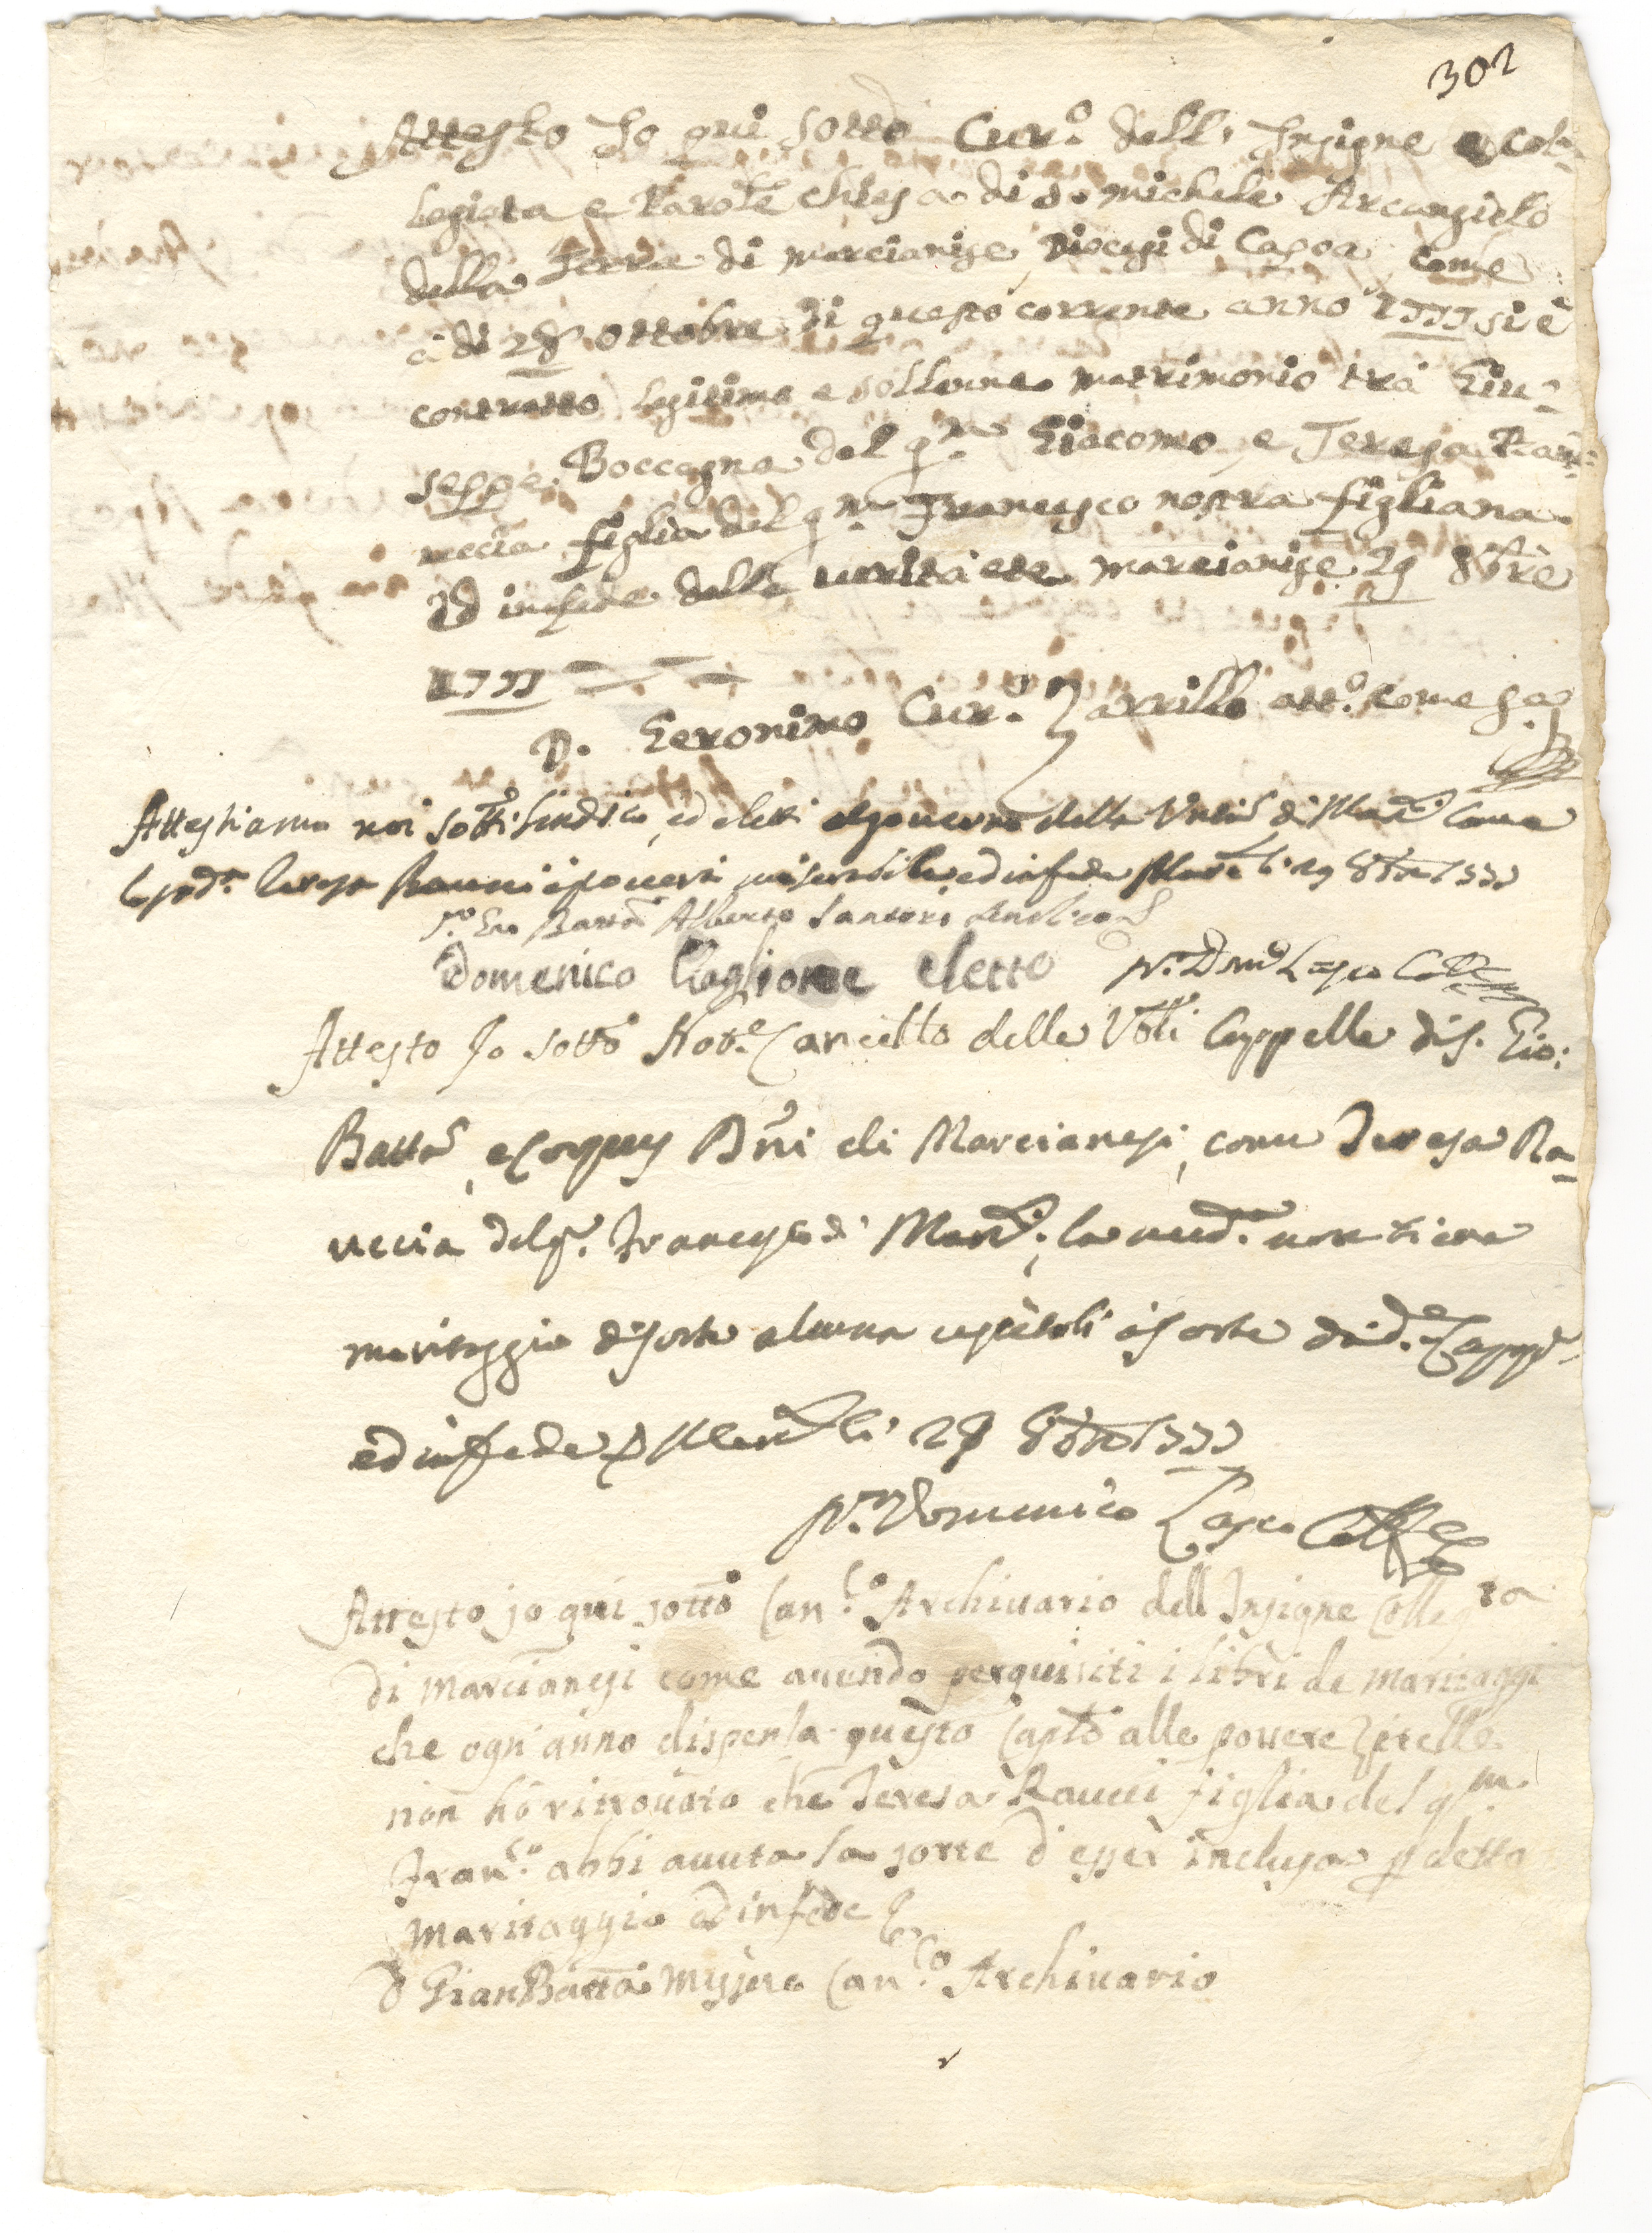 302
Attesto Io qui sotto Cur.º dell' Insigne e col-
legiata e Paroċle chiesa di S. michele Arcangielo
della Terra di marcianise Diocesi di Capoa come
a di 28 Ottobre di questo corrente anno 1777 si è
contratto legitimo e sollenne matrimonio trà Giu-
seppe Boccagna del q.m Giacomo, e Teresa Rau-
uccia figlia del q.m Francesco nostra figliana
Ed in fede della uerità etc marcianise 29 8bre
1777
D. Geronimo Cur.º Zarrillo att.º come sa
Attestiamo noi sotti Sindico, ed eletti al gouerno della Uniu.tà di Marc.i Come
la pnd.a Teresa Raucci è pouera miserabile, ed in fede Marc.i li 29 8bre 1777
Batta Alberto Santoro Sindico
Domenico Taglione eletto N.r Dom.co Lasco
Attesto Io sotto Not.e Cancello delle Vbli Cappelle di S. Gio:
Batta, e Corpus Dñi di Marcianesi, come Teresa Ra-
uccia del q. Francesco di Marc.i, la med.a non tiene
maritaggio di sorte alcuna uscitoli à sorte da d.e Capp.e
ed in fede Marc.i li 28 8bre 1777
N.r Domenico Lasco
Attesto io qui sotto Can.co Archiuario dell Insigne Colleg.ta
di Marcianesi come auendo perquisiti i libri de maritaggi
che ogn'anno dispensa questo Caplo alle pouere Zitelle
non hò ritrouato che Teresa Raucci figlia del q.m
Fran.co abbi auuta la sorte d'esser inclusa p detto
Maritaggio ed in fede
D GianBatta Can.co Archiuario